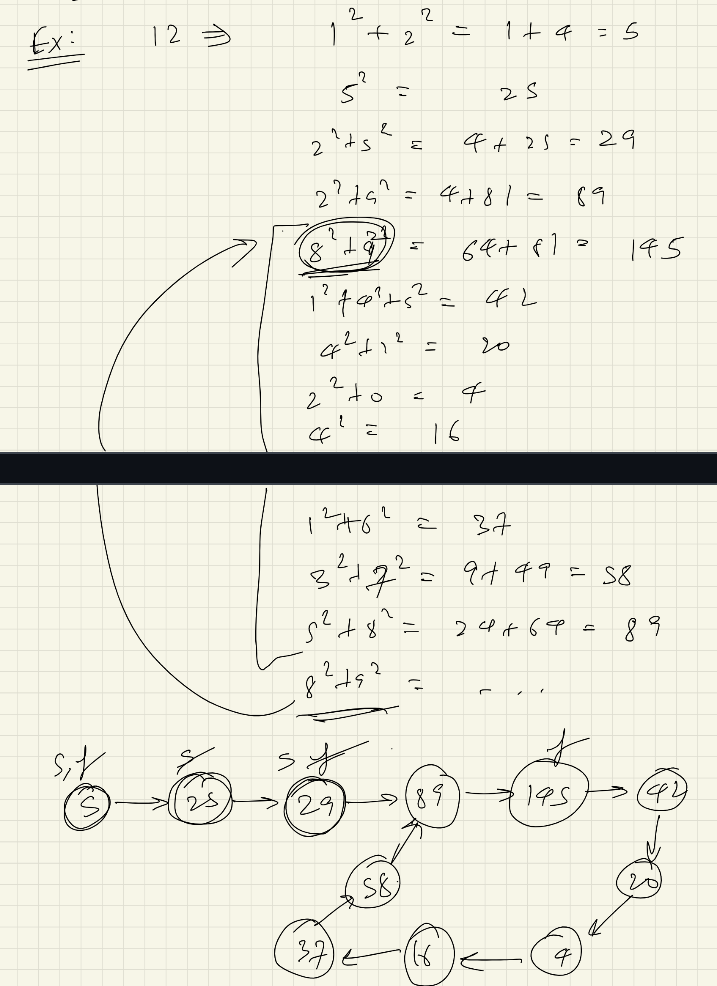 Ex: 12 ⇒ 1² + 2² = 1 + 4 = 5
5² = 25
2² + 5² = 4 + 25 = 29
2² + 9² = 4 + 81 = 89
8² + 9² = 64 + 81 = 145
1² + 4² + 5² = 42
4² + 2² = 20
2² + 0 = 4
4² = 16
1² + 6² = 37
3² + 7² = 9 + 49 = 58
5² + 8² = 24 + 64 = 89
8² + 9² = - . .
s, f s s f f
5 → 25 → 29 → 89 → 145 → 42
58 20
37 16 4